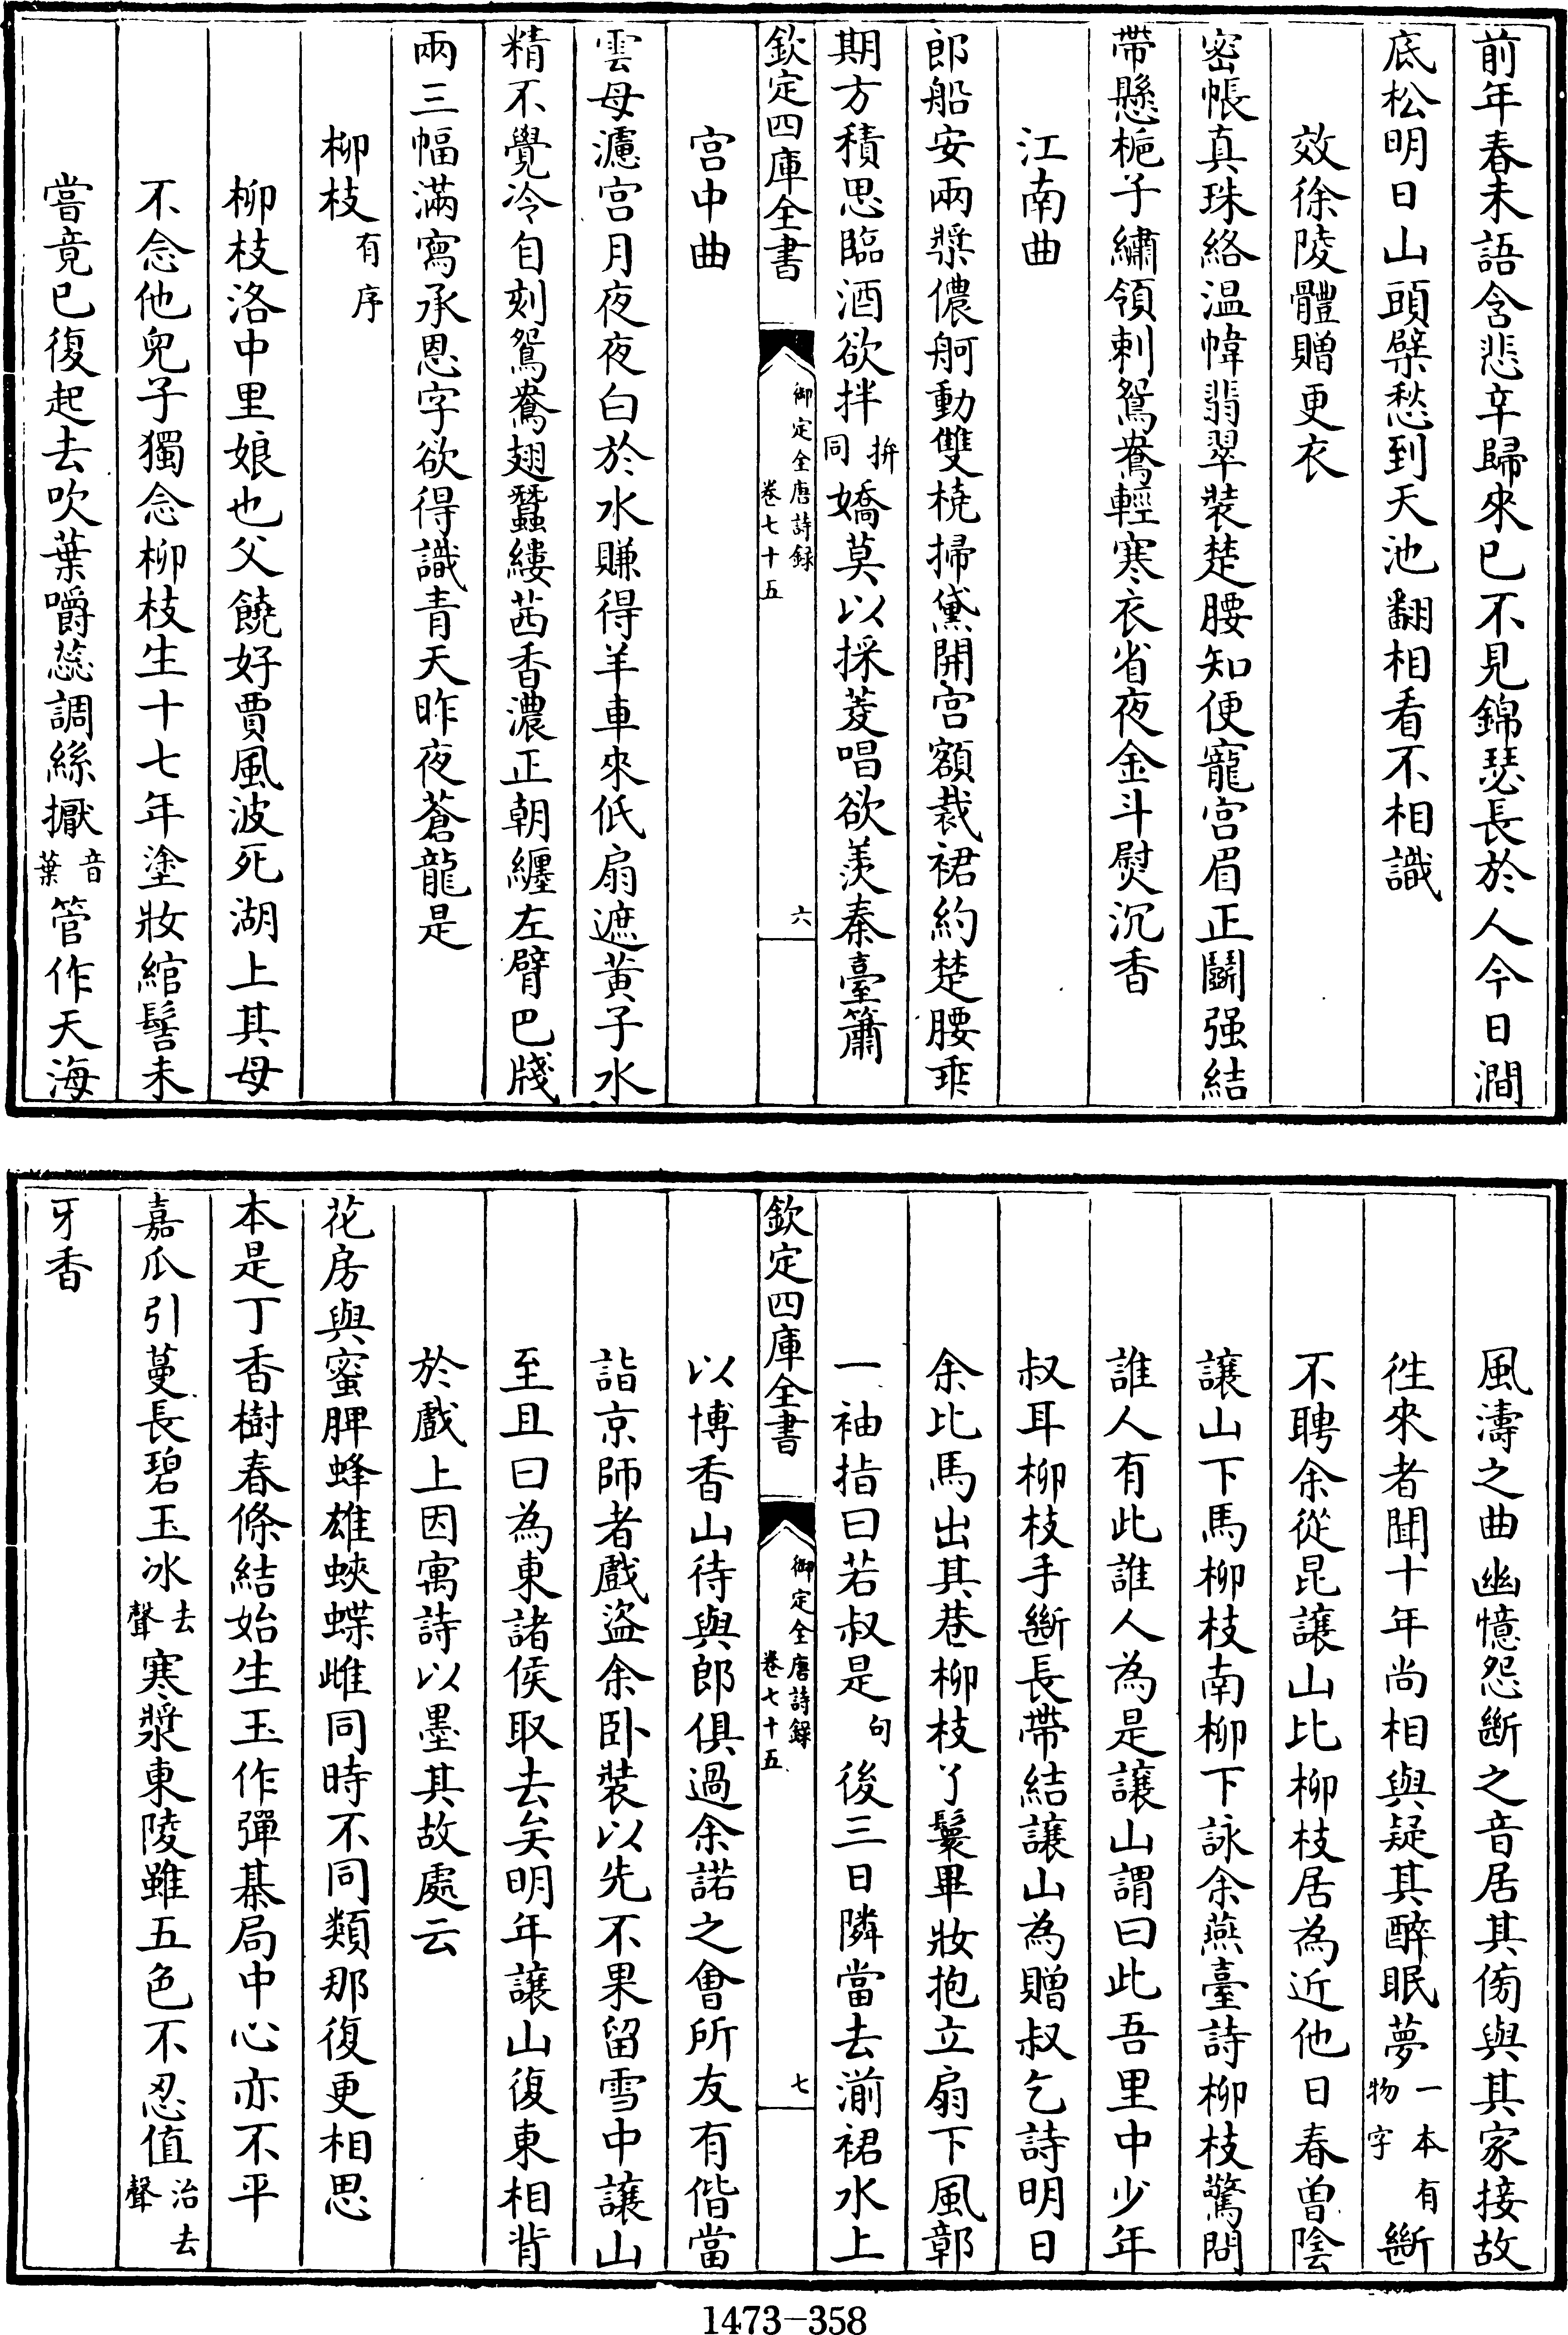 前年春未語含悲辛歸來已不見錦瑟長於人今日澗
底松明日山頭檗愁到天池翻相看不相識
效徐陵體贈更衣
密帳真珠絡温幃翡翠裝楚腰知便寵宫眉正鬭强結
帶懸梔子繡領刺鴛鴦輕寒衣省夜金斗熨沉香
江南曲
郎船安兩槳儂舸動雙橈掃黛開宫額裁裙約楚腰乖
期方積思臨酒欲拌拚同嬌莫以採菱唱欲羡秦臺簫
欽定四庫全書 御定全唐詩録 卷七十五 六
宫中曲
雲母濾宫月夜夜白於水賺得羊車來低扇遮黄子水
精不覺冷自刻鴛鴦翅蠶縷茜香濃正朝纏左臂巴牋
兩三幅滿寫承恩字欲得識青天昨夜蒼龍是
柳枝有序
柳枝洛中里娘也父饒好賈風波死湖上其母
不念他兒子獨念柳枝生十七年塗妝綰髻未
嘗竟已復起去吹葉嚼蕊調絲擫音葉管作天海
風濤之曲幽憶怨斷之音居其傍與其家接故
徃來者聞十年尚相與疑其醉眠夢一本有物字斷
不聘余從昆讓山比柳枝居為近他日春曾陰
讓山下馬柳枝南柳下詠余燕臺詩柳枝驚問
誰人有此誰人為是讓山謂曰此吾里中少年
叔耳柳枝手斷長帶結讓山為贈叔乞詩明日
余比馬出其巷柳枝丫鬟畢妝抱立扇下風鄣
一袖指曰若叔是句後三日隣當去湔裙水上
欽定四庫全書 御定全唐詩録 卷七十五 七
以博香山待與郎俱過余諾之會所友有偕當
詣京師者戲盜余卧裝以先不果留雪中讓山
至且曰為東諸侯取去矣明年讓山復東相背
於戲上因寓詩以墨其故處云
花房與蜜脾蜂雄蛺蝶雌同時不同類那復更相思
本是丁香樹春條結始生玉作彈棊局中心亦不平
嘉瓜引蔓長碧玉冰去聲寒漿東陵雖五色不忍值治去聲
牙香
1473-358